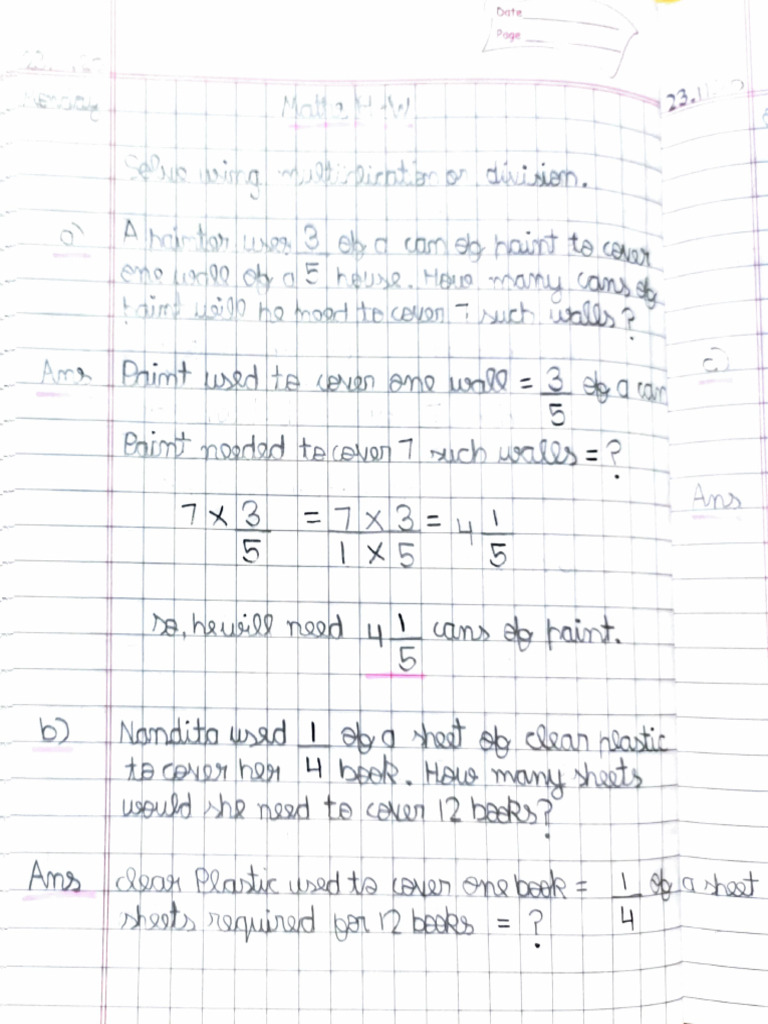 Date
Page
23.11
Maths H.W
Solve using multiplication or division.
a) A painter uses 3/5 of a can of paint to cover
one wall of a house. How many cans of
paint will he need to cover 7 such walls?
Ans Paint used to cover one wall = 3/5 of a can
Paint needed to cover 7 such walls = ?
7 × 3/5 = 7 × 3/1 × 5 = 4 1/5
so, he will need 4 1/5 cans of paint.
b) Nandita used 1/4 of a sheet of clear plastic
to cover her book. How many sheets
would she need to cover 12 books?
Ans clear Plastic used to cover one book = 1/4 of a sheet
sheets required for 12 books = ?
c)
Ans